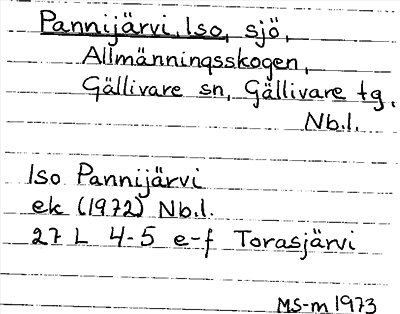 Pannijärvi, Iso, sjö,
Allmänningsskogen,
Gällivare sn, Gällivare tg.
Nb.l.
Iso Pannijärvi
ek (1972) Nb.l.
27 L 4-5 e-f Torasjärvi
MS-m 1973